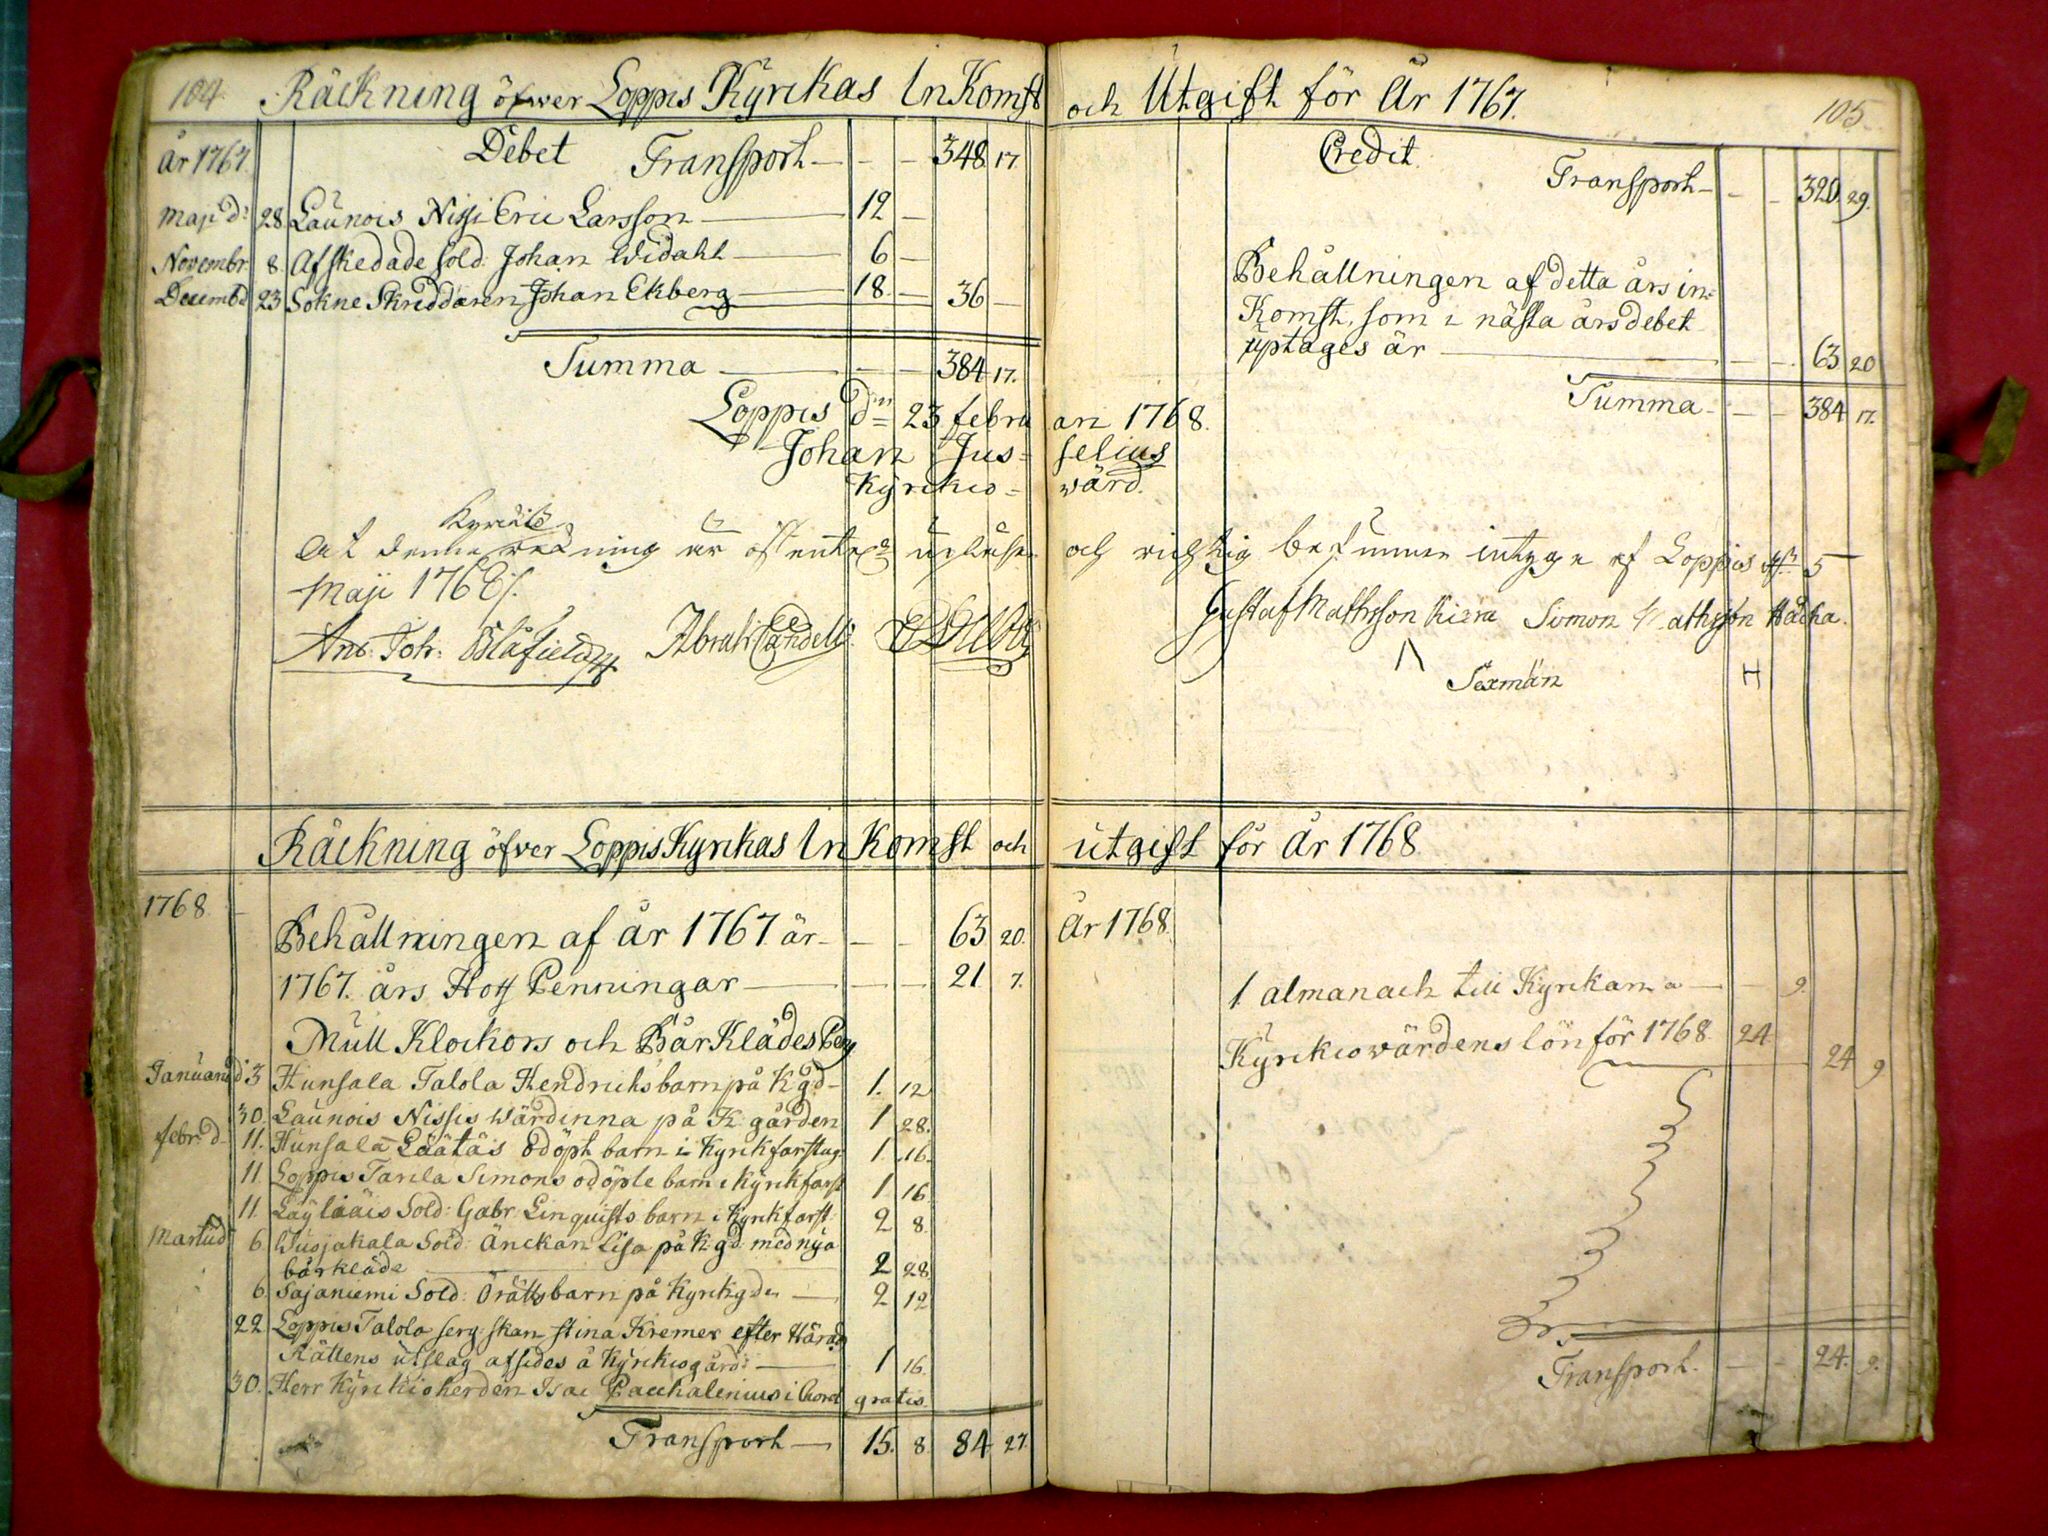 104. Räckning öfwer Loppis Kyrckas InKomst
År 1767. Debet Transport — — — 348 17.
Maji d: 28 Launois Nissi Eric Larsson — 12 —
Novembr 8. Afskedade Sold: Johan Widahl — 6 —
Decemb d 23 Sokne Skräddaren Johan Ekberg — 18. — 36 —
Summa — — — 384 17.
Loppis dn 23 februa
Johan Jus=
Kyrckio=
Kyrckio
At denna räkning är
Maji 1768.
And: Joh: Blåfield Abrah:
och Utgift för År 1767. 105.
Credit
Transport — — — 320. 29.
Behållningen af detta års in=
Komst, som i nästa års debet
uptages är — — — 63 20
Summa — — — 384 17.
ari 1768.
selius
wärd.
och richtig befunnen intygas af Loppis 5
Gustaf Mathsson Simon Mathsson
Sexmän H
Räckning öfver Loppis Kyrckas InKomst och
1768
Behållningen af år 1767 är — — — 63 20.
1767. års Hoff Penningar — — — 21. 7.
Mull Klockors och BårKlädes Peng
Januari d: 3 Hunsala Talola Hendrichs barn på K:g:d — 1. 12
30. Launois Nissis Wärdinna på K: gården 1 28.
febr: d. 11. Hunsala odöpt barn i Kyrckfarstug 1. 16.
11. Loppis Tarila Simons odöpte barn i Kyrckfarst 1 16
11. Läyliäis Sold: Gabr: Linquists barn i Kyrckfarst: 2 8.
Martii d 6 Wusjakala Sold: Änckan Lisa på K:g:d: med nya
bårkläde — 2 28
6. Sajaniemi Sold: barn på Kyrckg:den — 2 12
22 Loppis Talola serg:skan Stina Kremer efter Härads
Rättens utslag afsides å Kyrckiogård: — 1 16.
30. Herr Kyrckioherden Isac Pacchalenius i Choret gratis.
Transport — 15. 8. 84 27.
utgift för År 1768
År 1768.
1 almanach till Kyrckan a — — 9.
Kyrckiowärdens lön för 1768. 24 — 24 9
Transport. — — 24. 9.